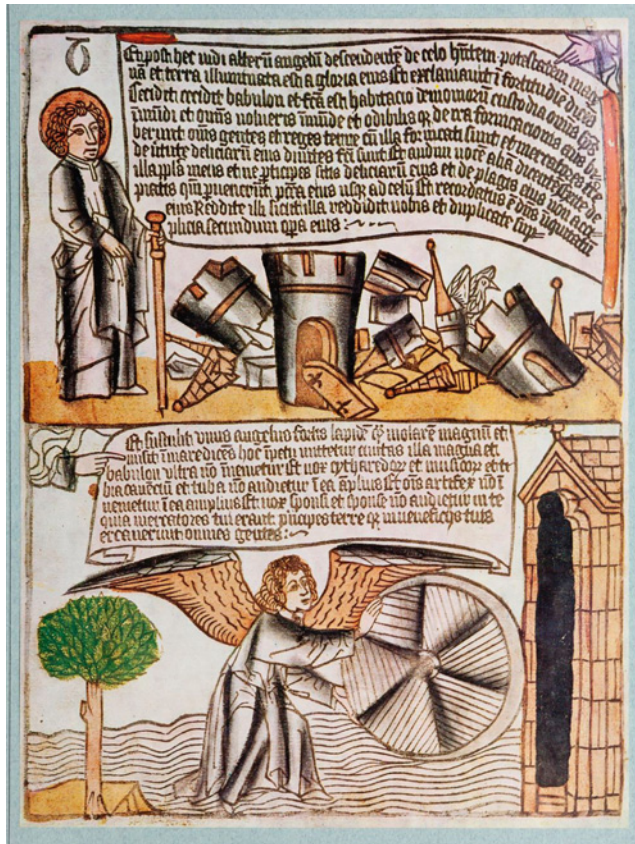 Et post hec vidi alterū angelū descendentē de celo hn̄tem potestatem mag
nā et terra illuminata est a gloria eius Et exclamavit ī fortitudīe
Cecidit cecidit babilon et fcā est habitacio demoniorū custodia omnis
īmūdi et omīs volucris īmūde et odibilis qz de ira fornicacionis eius bi
berunt omēs gentes et reges terre cū illa fornicati sunt et mercatores
de v̄tute deliciarū eius divites fcī sunt Et audivi vocē aliā dicentē Exite de
illa ppls meus et ne pticipes sitis deliciarū eius et de plagis eius non acci
piatis qm̄ pvenerunt pccā eius usqz ad celū Et recordatus ē dn̄s iniquitatū
eius Reddite illi sicut illa reddidit vobis et duplicate
plicia secundum opa eius
Et sustulit vnus angelus fortis lapidē qz molarē magnū et
misit ī mare dicēs hoc īpetu mittetur civitas illa magna et
babilon vltra nō īvenietur Et vox cytharedoꝝ et musicoꝝ et ti
bia canenciū et tuba nō audietur ī ea āplius Et oīs artifex nō ī
venietur ī ea amplius Et vox sponsi et sponse nō audietur in te
quia mercatores tui erant pncipes terre qz in veneficijs tuis
erraverunt omnes gentes